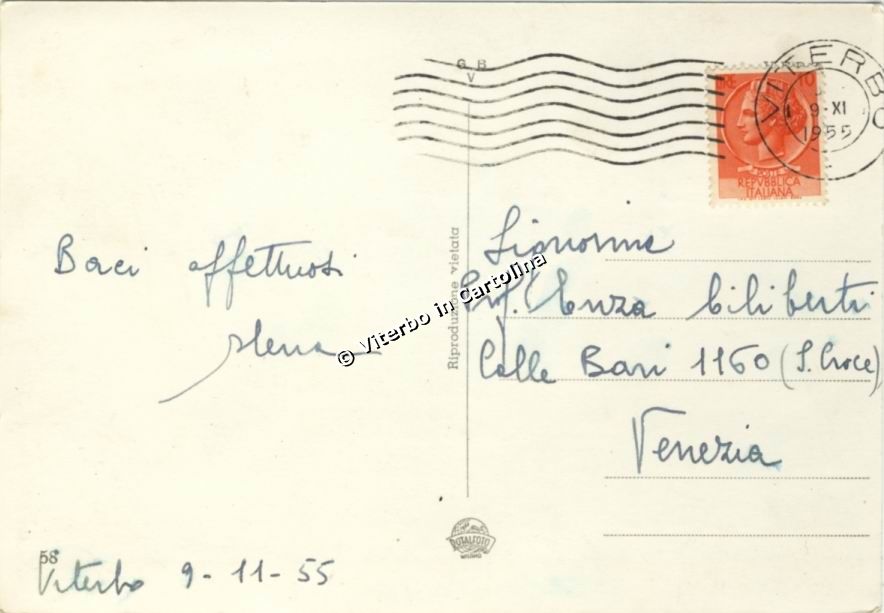 Baci affettuosi
Elena
58
Viterbo 9-11-55
G B
V
Riproduzione vietata
© Viterbo in Cartolina
ROTALFOTO
MILANO
LIRE 10
POSTE
REPVBBLICA
ITALIANA
VITERBO
9-XI
1955
Signorina
Prof. Enza Ciliberti
Calle Bari 1160 (S. Croce)
Venezia